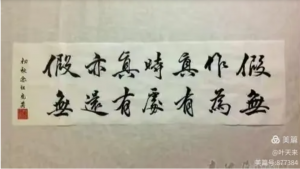 假作真時真亦假
無為有處有還無
美篇
@叶天来
美篇号:877384